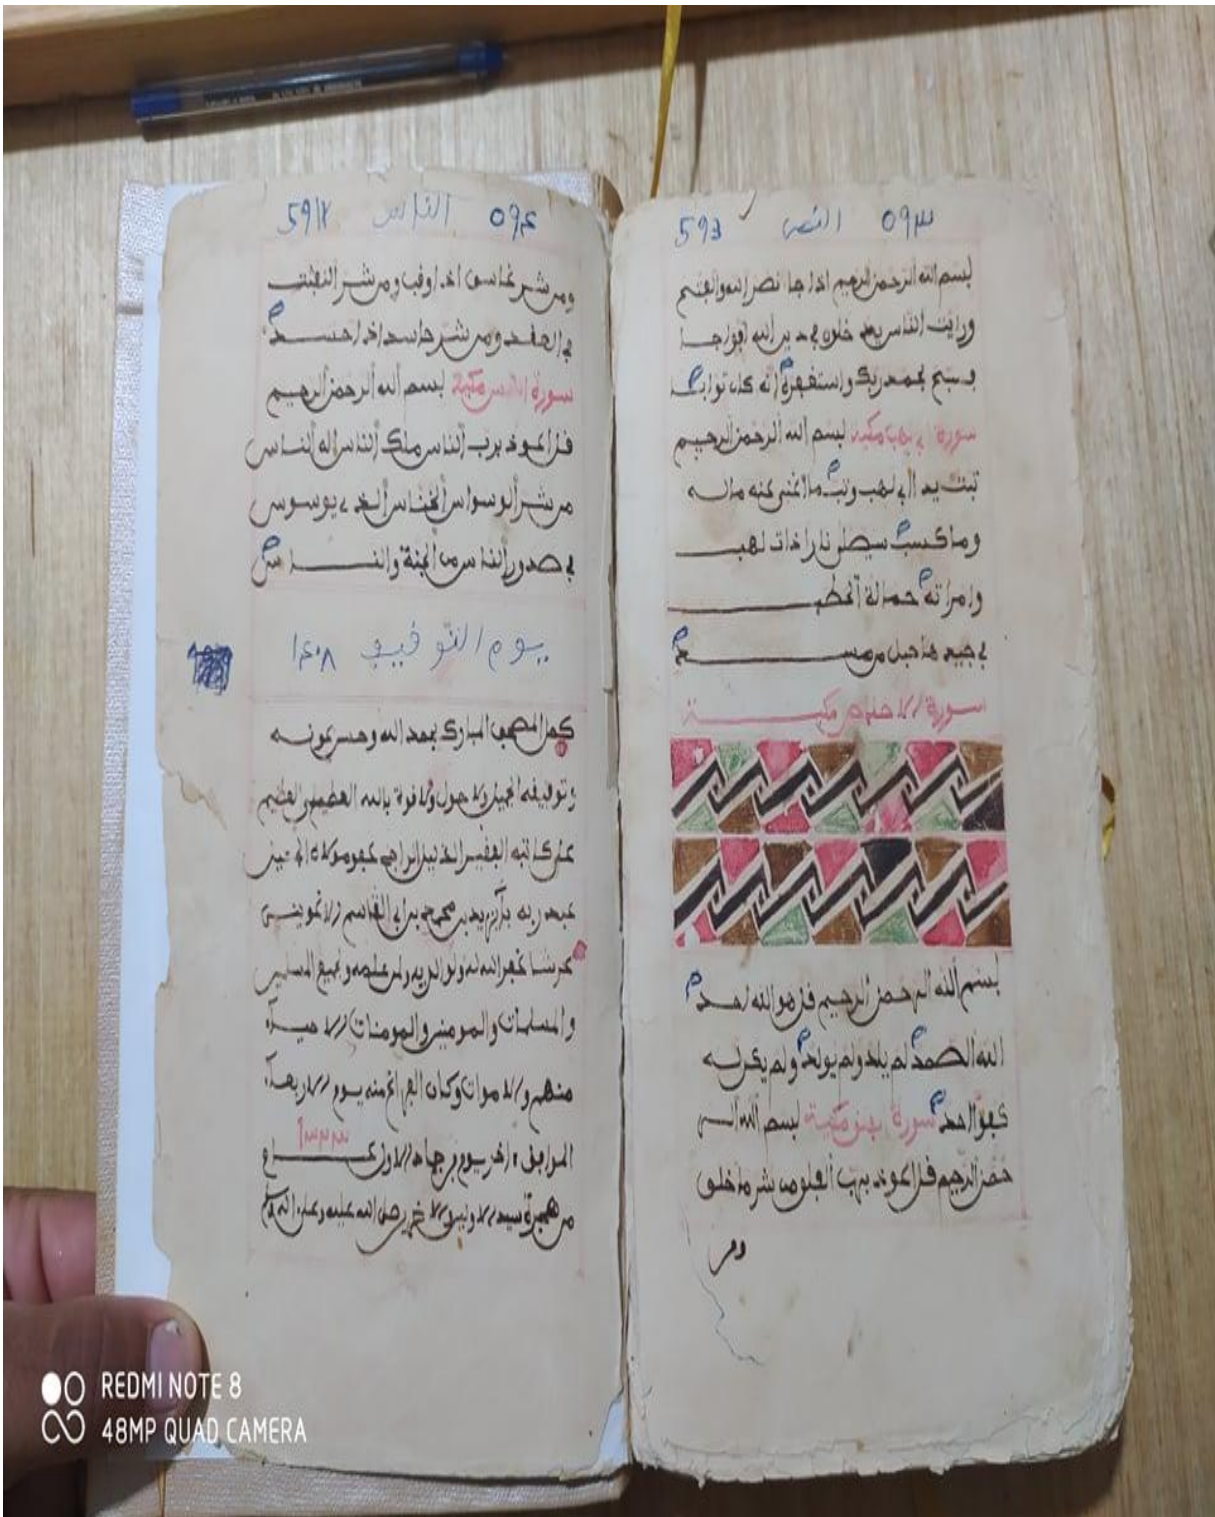 593 النصر ٥٩٣
بسم الله الرحمن الرحيم اذا جا نصر الله والفتح
ورايت الناس يدخلون في دين الله افواجا
فسبح بحمد ربك واستغفره انه كان توابا
سورة ابي لهب مكية بسم الله الرحمن الرحيم
تبت يدا ابي لهب وتب ما اغنى عنه ماله
وما كسب سيصلى نارا ذات لهب
وامراته حمالة الحطب
في جيدها حبل من مسد
سورة الاخلاص مكية
بسم الله الرحمن الرحيم قل هو الله احد
الله الصمد لم يلد ولم يولد ولم يكن له
كفوا احد سورة الفلق مكية بسم الله الر
حمن الرحيم قل اعوذ برب الفلق من شر ما خلق
ومن
594 الناس ٥٩٤
ومن شر غاسق اذا وقب ومن شر النفثت
في العقد ومن شر حاسد اذا حسد
سورة الناس مكية بسم الله الرحمن الرحيم
قل اعوذ برب الناس ملك الناس اله الناس
من شر الوسواس الخناس الذي يوسوس
في صدور الناس من الجنة والناس
يوم التوفيق ١٤٠٨
كمل المصحف المبارك بحمد الله وحسن عونه
وتوفيقه الجميل ولا حول ولا قوة بالله العلي العظيم
على كاتبه الفقير الذليل الراجي عفو مولاه
عبد ربه بن محمد بن ابي القاسم
غفر الله له ولوالديه ولمن علمه ولجميع المسلمين
والمسلمات والمومنين والمومنات الاحياء
منهم والاموات وكان الفراغ منه يوم الاربعاء
الموافق اخر يوم من جماد الاول عام
من هجرة سيد الاولين والاخرين صلى الله عليه وعلى اله
REDMI NOTE 8
48MP QUAD CAMERA